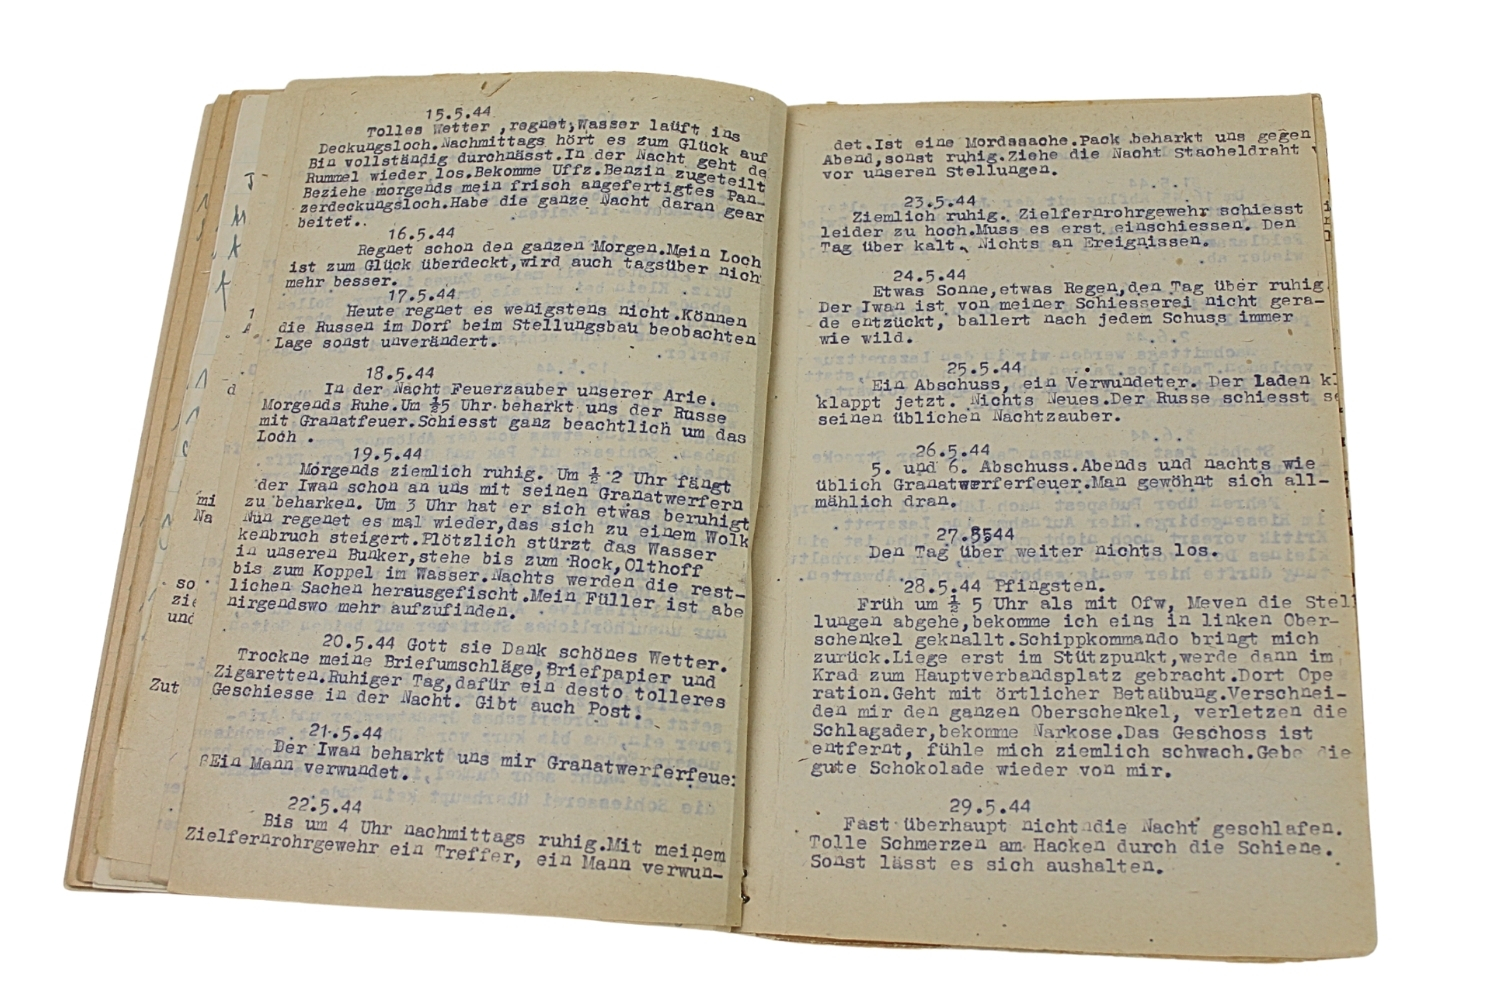 15.5.44
Tolles Wetter ,regnet,Wasser läuft ins
Deckungsloch.Nachmittags hört es zum Glück auf
Bin vollständig durchnässt.In der Nacht geht de
Rummel wieder los.Bekomme Uffz.Benzin zugeteilt
Beziehe morgends mein frisch angefertigtes Pan-
zerdeckungsloch.Habe die ganze Nacht daran gear
beitet..
16.5.44
Regnet schon den ganzen Morgen.Mein Loch
ist zum Glück überdeckt,wird auch tagsüber nich
mehr besser.
17.5.44
Heute regnet es wenigstens nicht.Können
die Russen im Dorf beim Stellungsbau beobachten
Lage sonst unverändert.
18.5.44
In der Nacht Feuerzauber unserer Arie.
Morgends Ruhe.Um ½5 Uhr beharkt uns der Russe
mit Granatfeuer.Schiesst ganz beachtlich um das
Loch .
19.5.44
Morgends ziemlich ruhig. Um ½ 2 Uhr fängt
der Iwan schon an uns mit seinen Granatwerfern
zu beharken. Um 3 Uhr hat er sich etwas beruhigt
Nun regenet es mal wieder,das sich zu einem Wolk
kenbruch steigert.Plötzlich stürzt das Wasser
in unseren Bunker,stehe bis zum Rock,Olthoff
bis zum Koppel im Wasser.Nachts werden die rest-
lichen Sachen herausgefischt.Mein Füller ist abe
nirgendswo mehr aufzufinden.
20.5.44 Gott sie Dank schönes Wetter.
Trockne meine Briefumschläge,Briefpapier und
Zigaretten.Ruhiger Tag,dafür ein desto tolleres
Geschiesse in der Nacht. Gibt auch Post.
21.5.44
Der Iwan beharkt uns mir Granatwerferfeue:
Ein Mann verwundet.
22.5.44
Bis um 4 Uhr nachmittags ruhig.Mit meinem
Zielfernrohrgewehr ein Treffer, ein Mann verwun-
mi
Na
so
zie
und
Zut
det.Ist eine Mordssache.Pack beharkt uns gegen
Abend,sonst ruhig.Ziehe die Nacht Stacheldraht
vor unseren Stellungen.
23.5.44
Ziemlich ruhig. Zielfernrohrgewehr schiesst
leider zu hoch.Muss es erst einschiessen. Den
Tag über kalt. Nichts an Ereignissen.
24.5.44
Etwas Sonne,etwas Regen,den Tag über ruhig.
Der Iwan ist von meiner Schiesserei nicht gera-
de entzückt, ballert nach jedem Schuss immer
wie wild.
25.5.44
Ein Abschuss, ein Verwundeter. Der Laden k
klappt jetzt. Nichts Neues.Der Russe schiesst s
seinen üblichen Nachtzauber.
26.5.44
5. und 6. Abschuss.Abends und nachts wie
üblich Granatwerferfeuer.Man gewöhnt sich all-
mählich dran.
27.5544
Den Tag über weiter nichts los.
28.5.44 Pfingsten.
Früh um ½ 5 Uhr als mit Ofw, Meven die Stel
lungen abgehe,bekomme ich eins in linken Ober-
schenkel geknallt.Schippkommando bringt mich
zurück.Liege erst im Stützpunkt,werde dann im
Krad zum Hauptverbandsplatz gebracht.Dort Ope
ration.Geht mit örtlicher Betaübung.Verschnei-
den mir den ganzen Oberschenkel, verletzen die
Schlagader,bekomme Narkose.Das Geschoss ist
entfernt, fühle mich ziemlich schwach.Gebe die
gute Schokolade wieder von mir.
29.5.44
Fast überhaupt nicht die Nacht geschlafen.
Tolle Schmerzen am Hacken durch die Schiene.
Sonst lässt es sich aushalten.